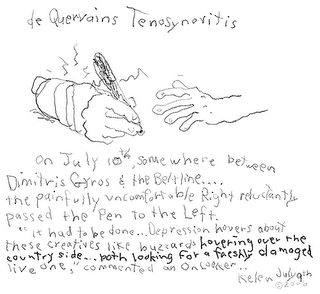 de Quervains Tenosynovitis
On July 10th, somewhere between
Dimitris Gyros & the Beltline....
the painfully uncomfortable Right reluctantly
passed the Pen to the Left.
"it had to be done... Depression hovers about
these creatives like buzzards hovering over the
country side... both looking for a freshly damaged
live one," commented an Onlooker..
Kelen July 9th
©2006